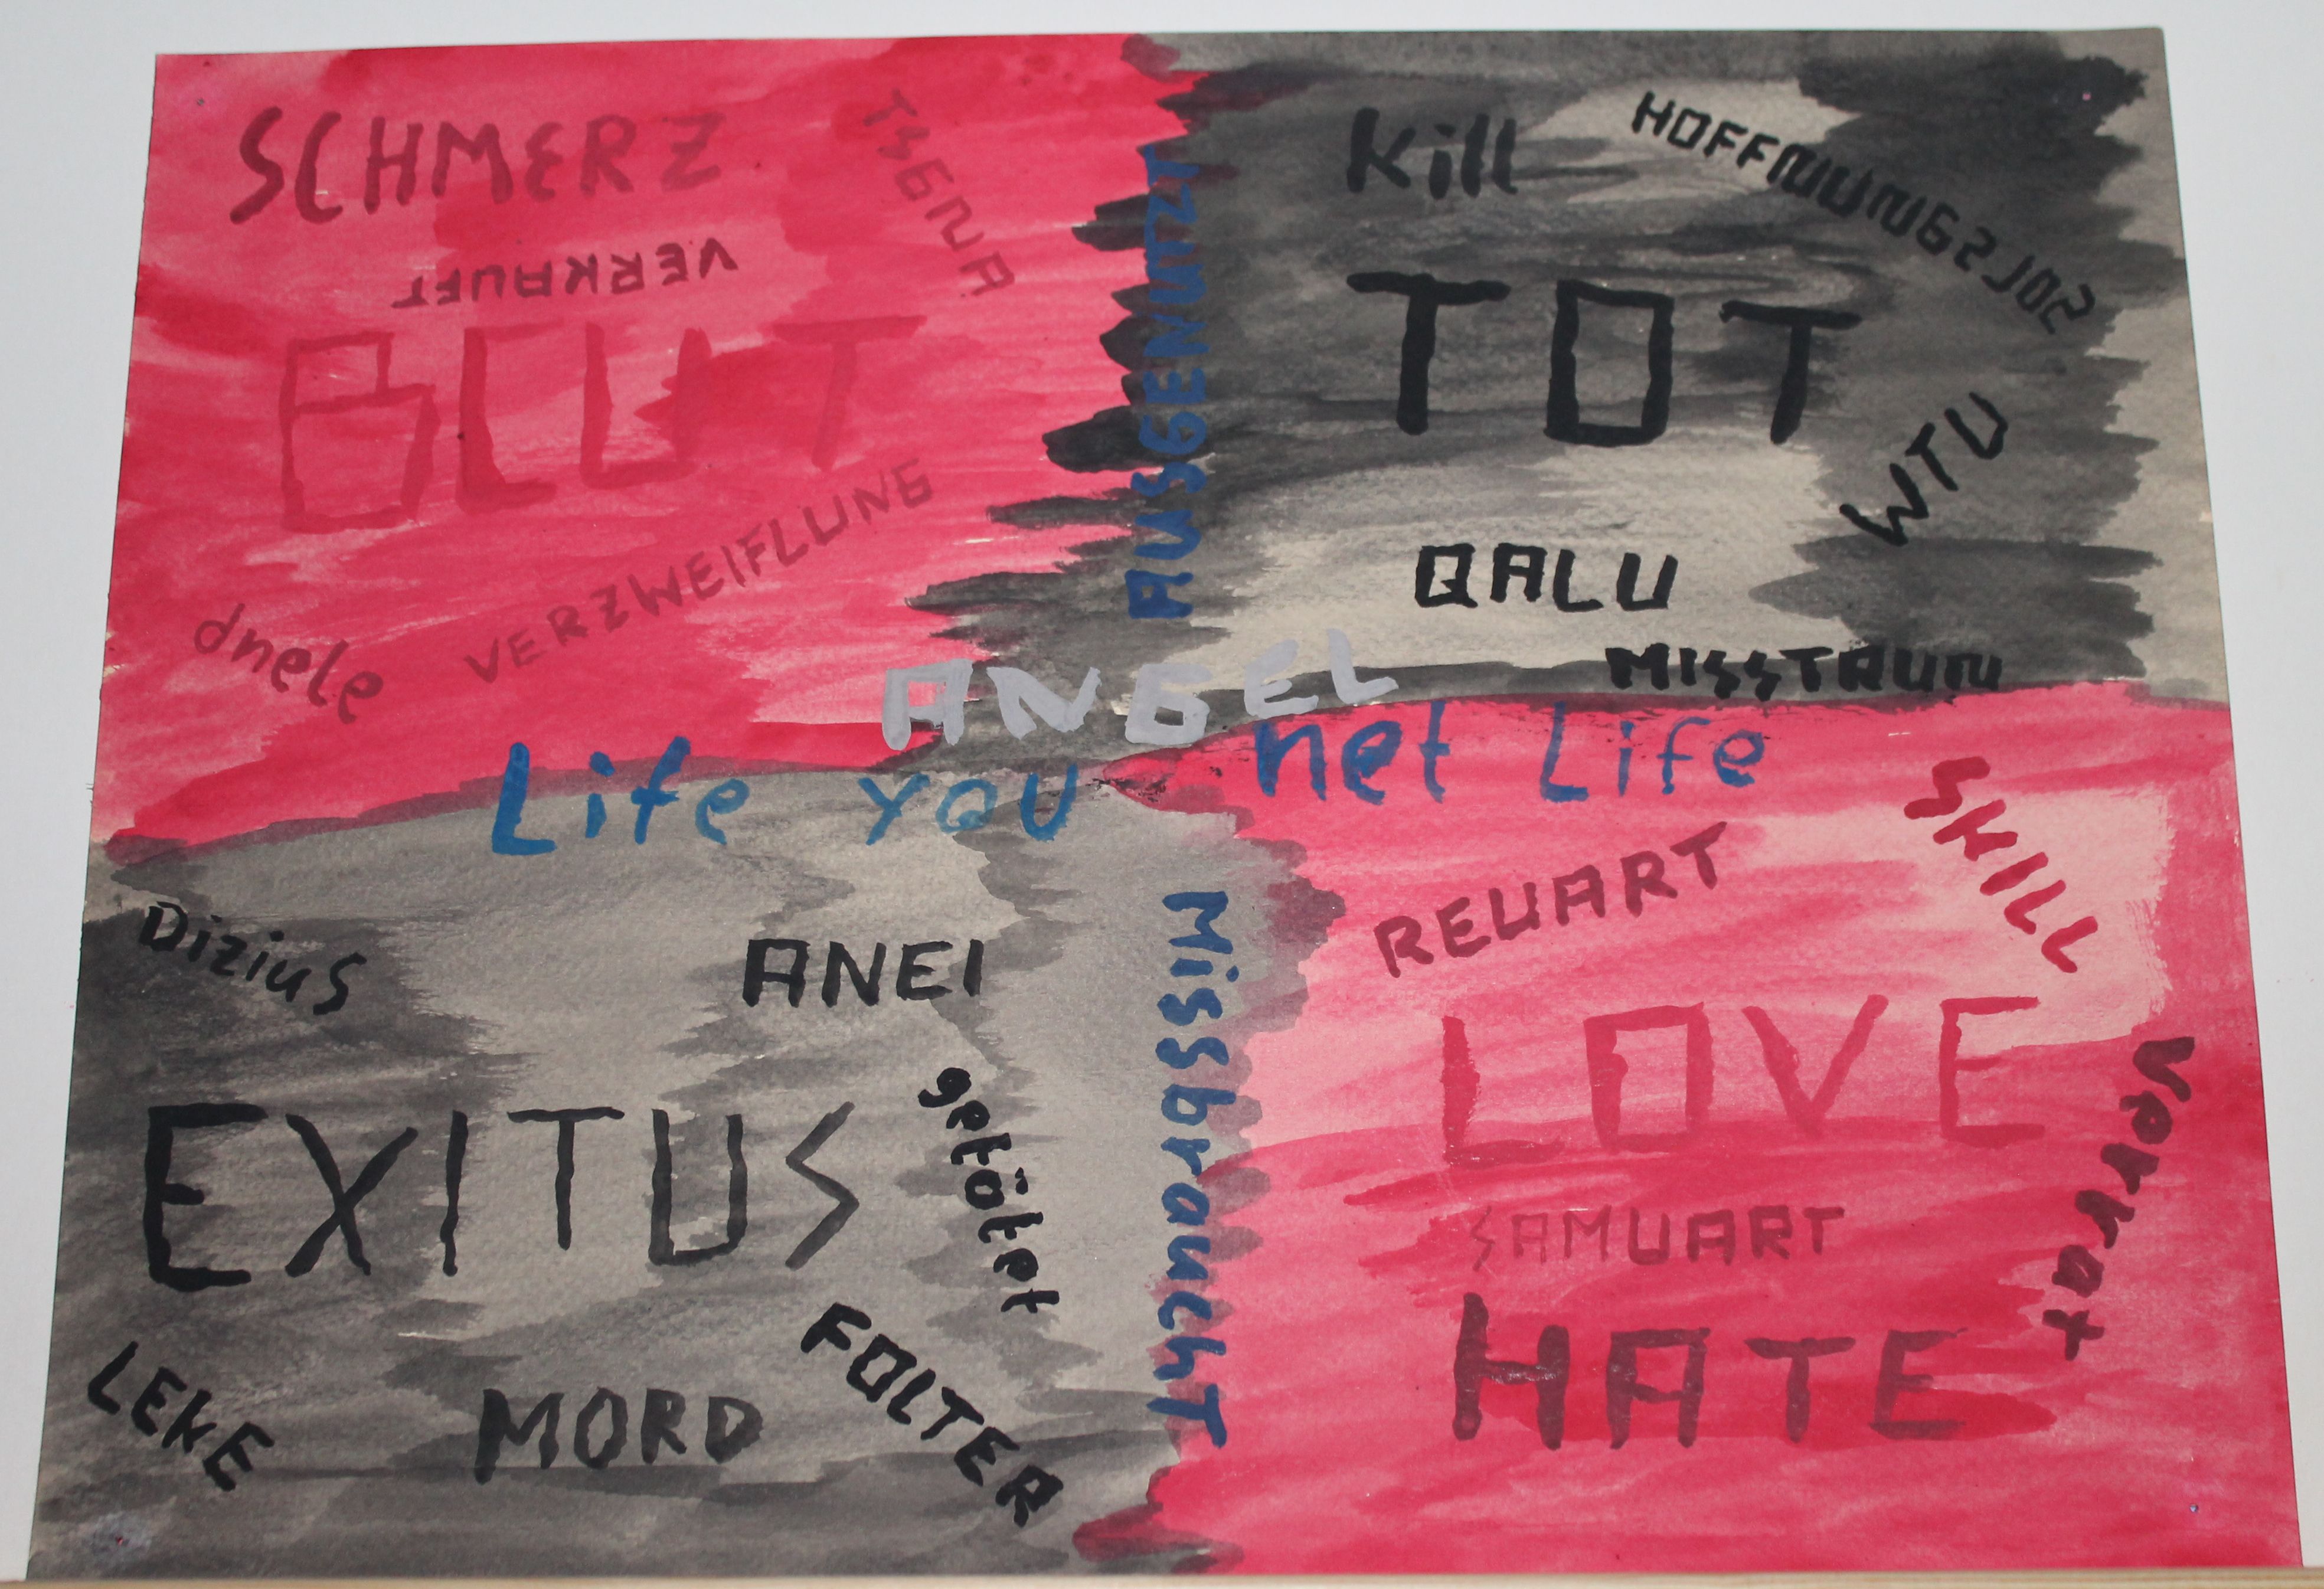 SCHMERZ
TSGNA
VERKAUFT
BLUT
VERZWEIFLUNG
dnele
AUSGENUTZT
Kill
HOFFNUNGSLOS
TOT
WTU
QALU
MISSTRUN
ANGEL
Life you net Life
Dizius
ANEI
EXITUS
getötet
LEKE
MORD
FOLTER
MissbrauchT
REUART
SKILL
LOVE
SAMUART
HATE
Verrat